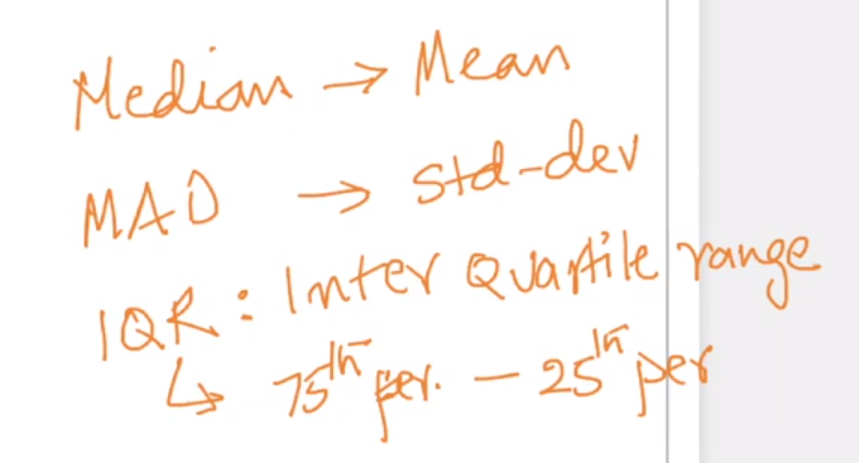 Median → Mean
MAD → std-dev
IQR: Inter Quartile range
↳ 75th per. - 25th per